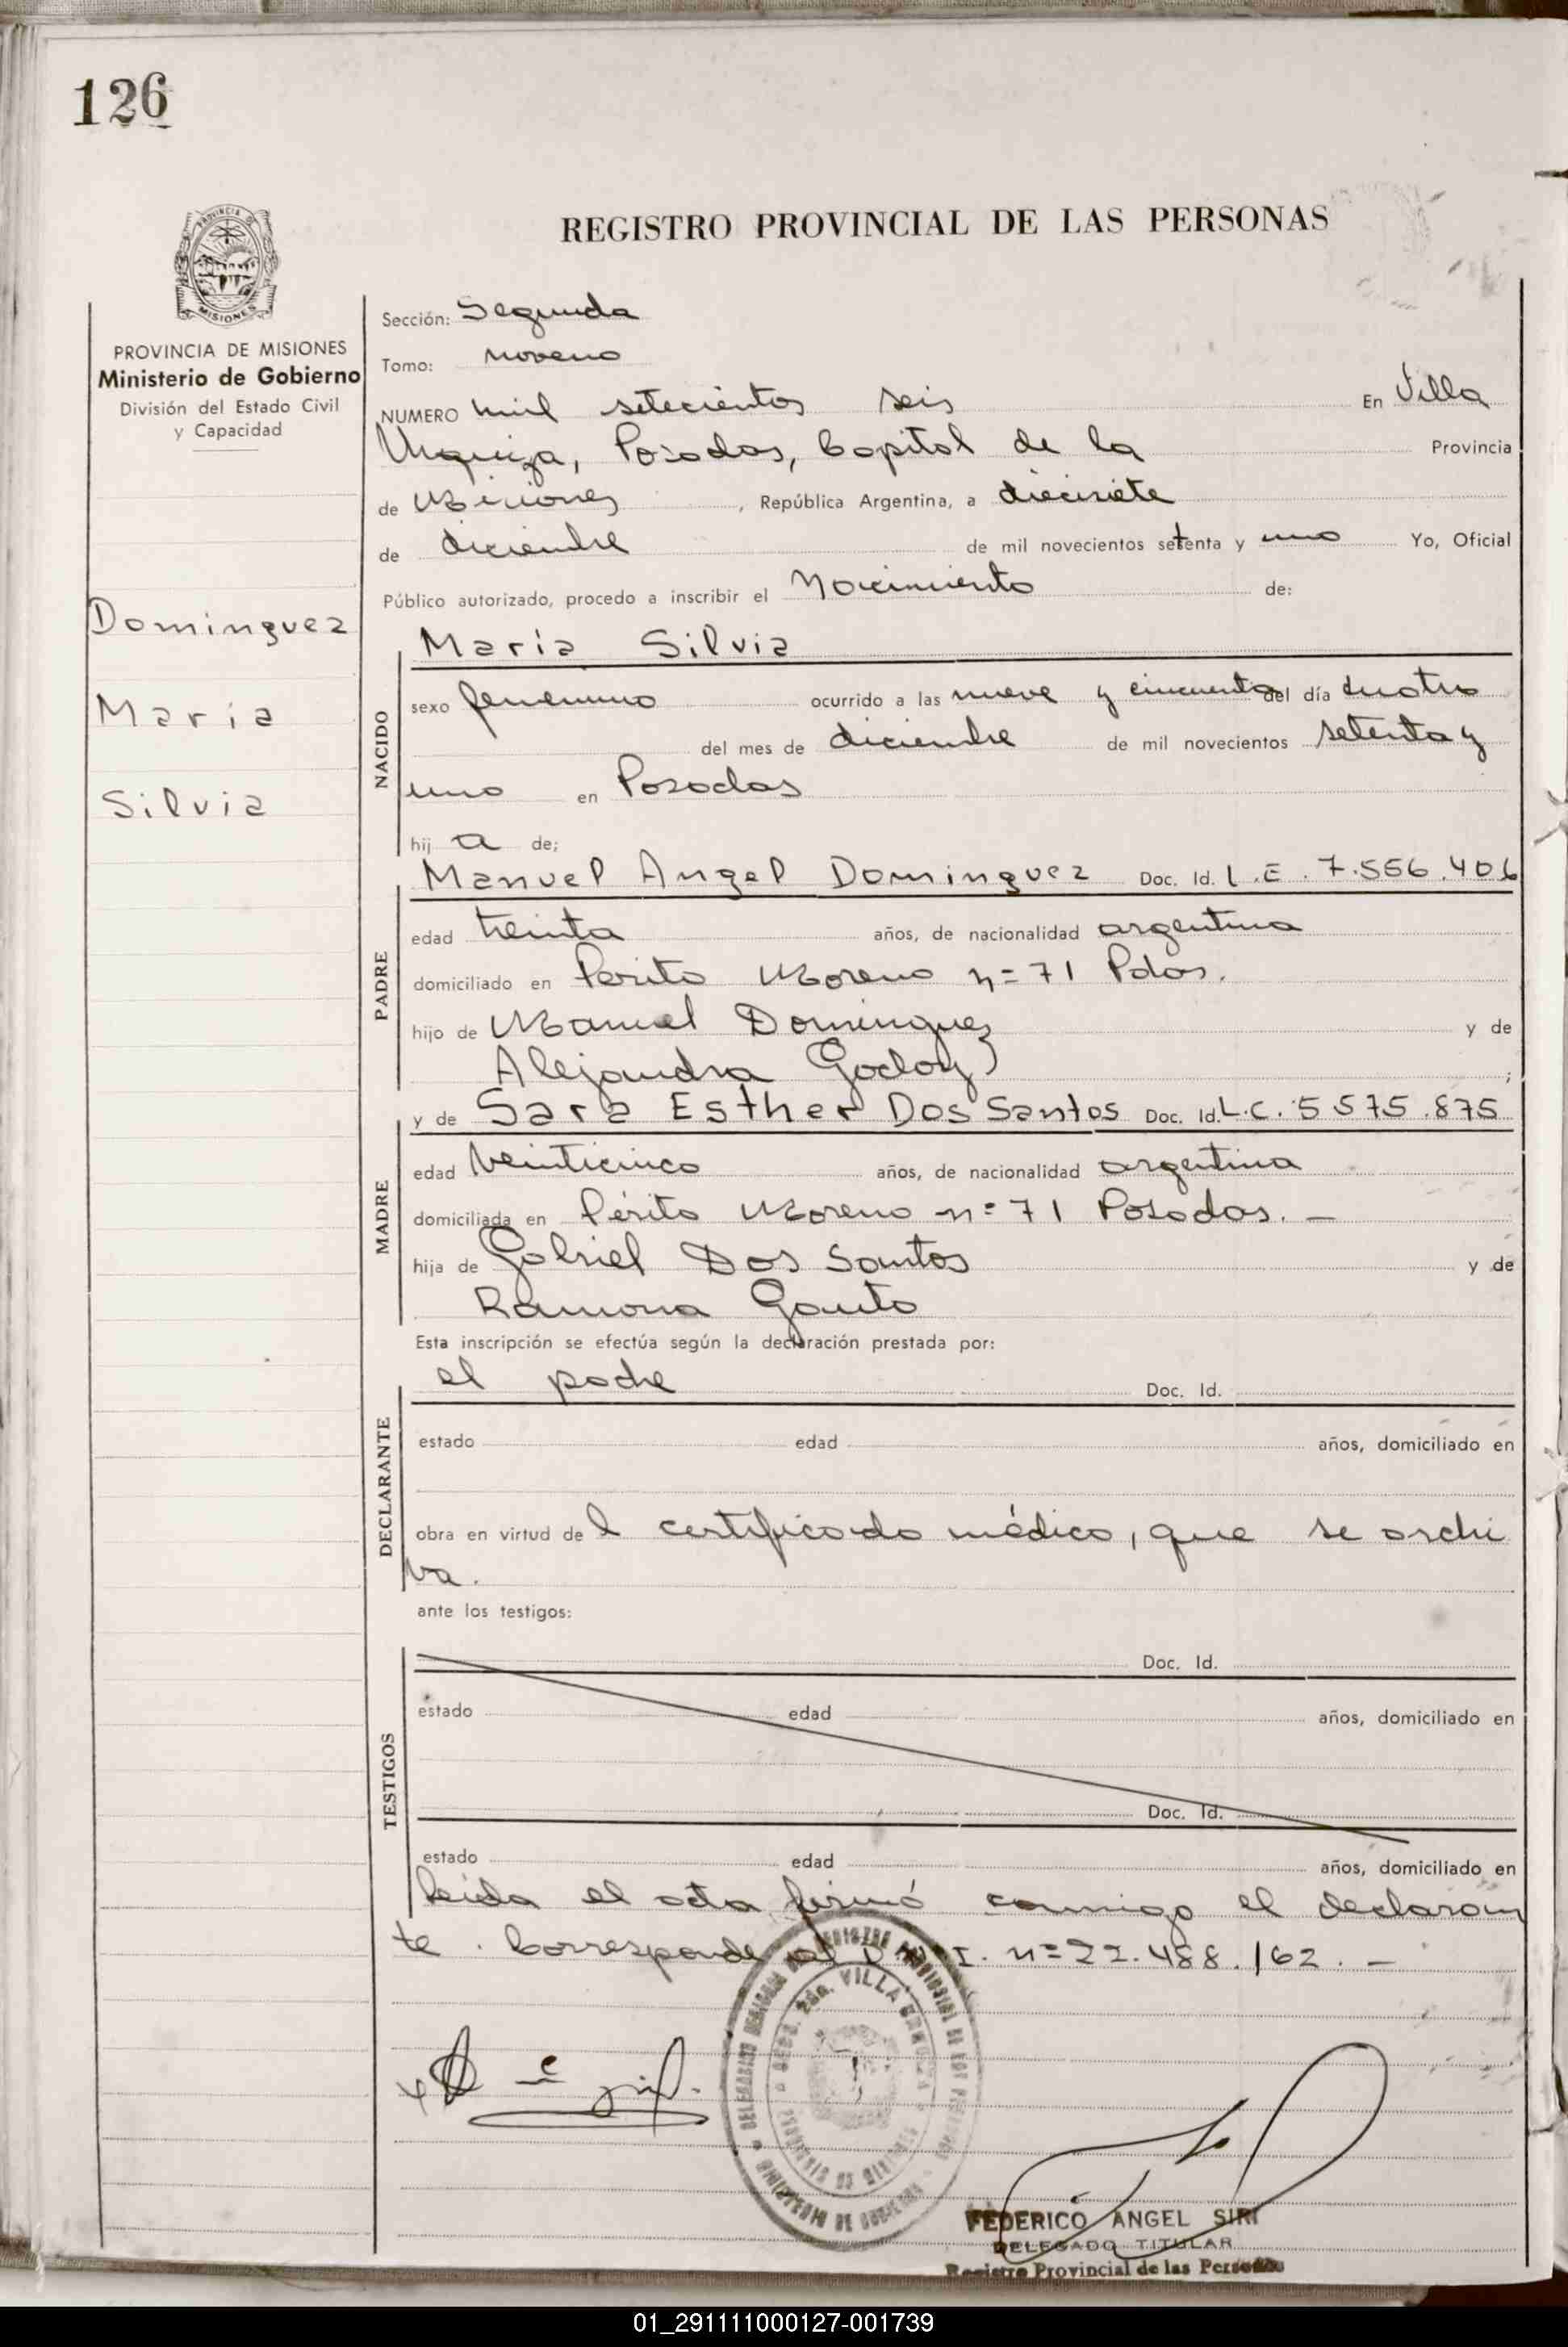 126
REGISTRO PROVINCIAL DE LAS PERSONAS
PROVINCIA DE MISIONES
Ministerio de Gobierno
División del Estado Civil
y Capacidad
Dominguez
Maria
Silvia
Sección: Segunda
Tomo: noveno
NUMERO mil setecientos seis En Villa
Urquiza, Posadas, Capital de la Provincia
de Misiones, República Argentina, a diecisiete
de diciembre de mil novecientos setenta y uno Yo, Oficial
Público autorizado, procedo a inscribir el Nacimiento de:
María Silvia
NACIDO
sexo femenino ocurrido a las nueve y cincuenta del día cuatro
del mes de diciembre de mil novecientos setenta y
uno en Posadas
hij a de;
PADRE
Manuel Angel Dominguez Doc. Id. L.E. 7.556.406
edad treinta años, de nacionalidad argentina
domiciliado en Perito Moreno n= 71 Pdas.
hijo de Manuel Dominguez y de
Alejandra Godoy ;
MADRE
y de Sara Esther Dos Santos Doc. Id. L.C. 5575.875
edad veinticinco años, de nacionalidad argentina
domiciliada en Périto Moreno n= 71 Posadas. —
hija de Gabriel Dos Santos y de
Ramona Gauto
Esta inscripción se efectúa según la declaración prestada por:
DECLARANTE
el padre Doc. Id.
estado edad años, domiciliado en
obra en virtud de l certificado médico, que se archi
va.
ante los testigos:
TESTIGOS
Doc. Id.
estado edad años, domiciliado en
Doc. Id.
estado edad años, domiciliado en
leida el acta firmó conmigo el declaran
te. Corresponde al D.N.I. n= 22.488.162. —
VILLA URQUIZA
MINISTERIO DE GOBIERNO
FEDERICO ANGEL SIRI
DELEGADO TITULAR
Registro Provincial de las Personas
01_291111000127-001739